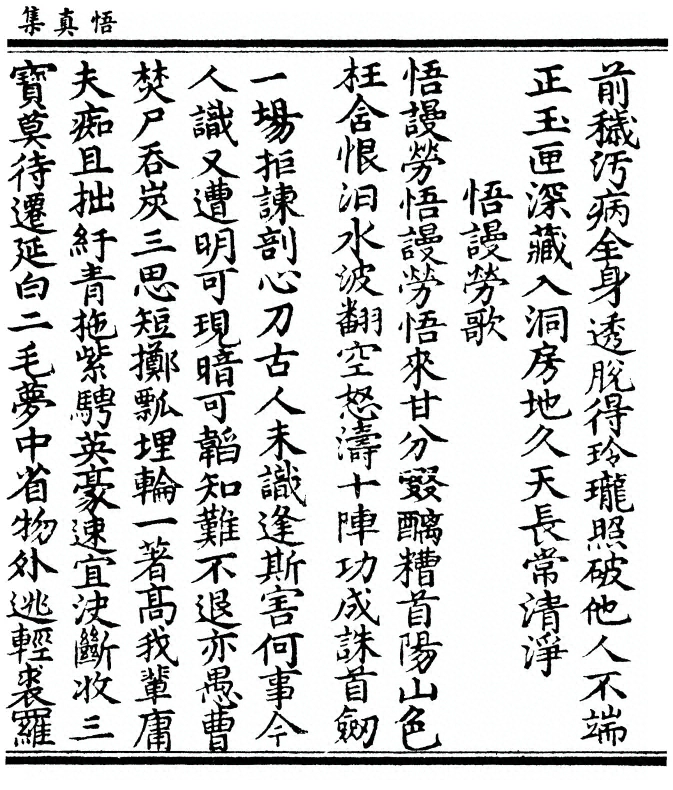 悟真集
前穢汚病全身透脫得玲瓏照破他人不端
正玉匣深藏入洞房地久天長常清淨
悟謾勞歌
悟謾勞悟謾勞悟來甘分餟醨糟首陽山色
枉含恨汨水波翻空怒濤十陣功成誅首劒
一場拒諫剖心刀古人未識逢斯害何事今
人識又遭明可現暗可韜知難不退亦愚曹
焚尸吞炭三思短擲瓢埋輪一著高我輩庸
夫痴且拙紆青拖紫騁英豪速宜決斷收三
寶莫待遷延白二毛夢中省物外逃輕裘羅